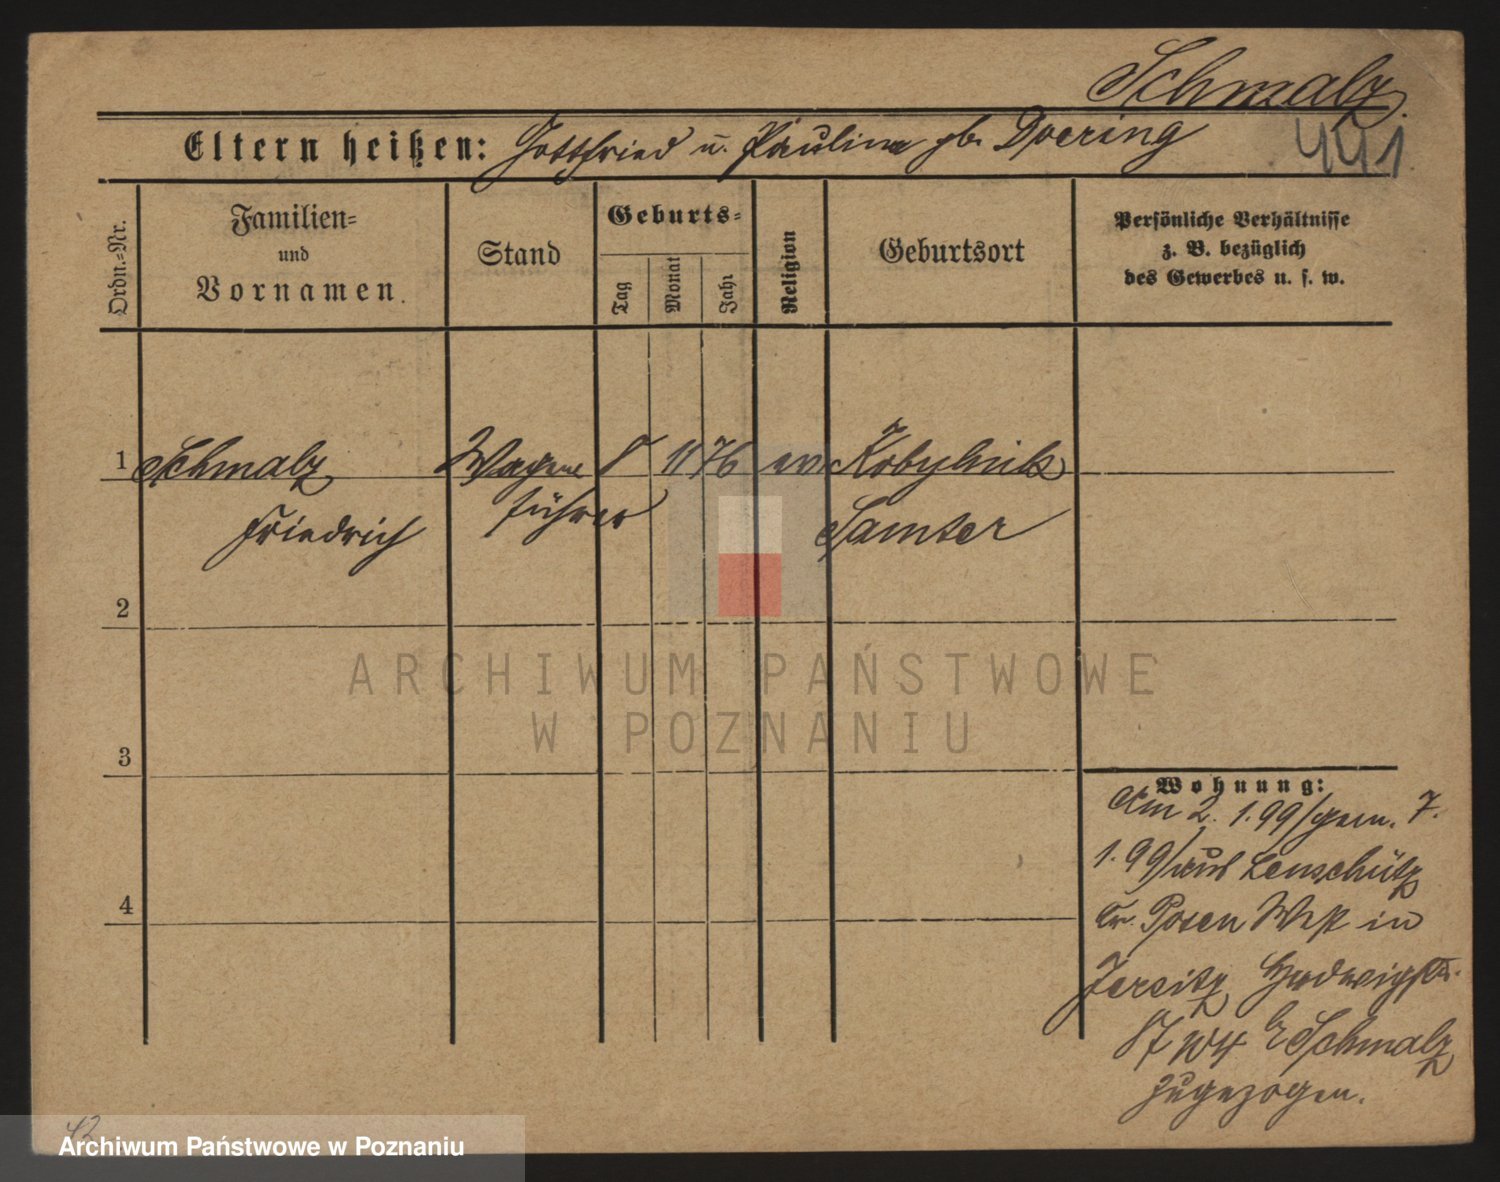 Schmalz
491
Eltern heißen: Gottfried u. Pauline gb. Doering
Ordn.=Nr.
Familien=
und
Vornamen.
Stand
Geburts=
Tag
Monat
Jahr
Religion
Geburtsort
Persönliche Verhältnisse
z. B. bezüglich
des Gewerbes u. s. w.
1 Schmalz Wagen 8 11 76 ev Kobylnik
Friedrich führer Samter
2
3
4
ARCHIWUM PAŃSTWOWE
W POZNANIU
Wohnung:
Am 2. 1. 99 /gem. 7.
1. 99/ aus Lenschütz
Kr. Posen West in
Jersitz Hedwigstr.
b Schmalz
zugezogen.
Archiwum Państwowe w Poznaniu